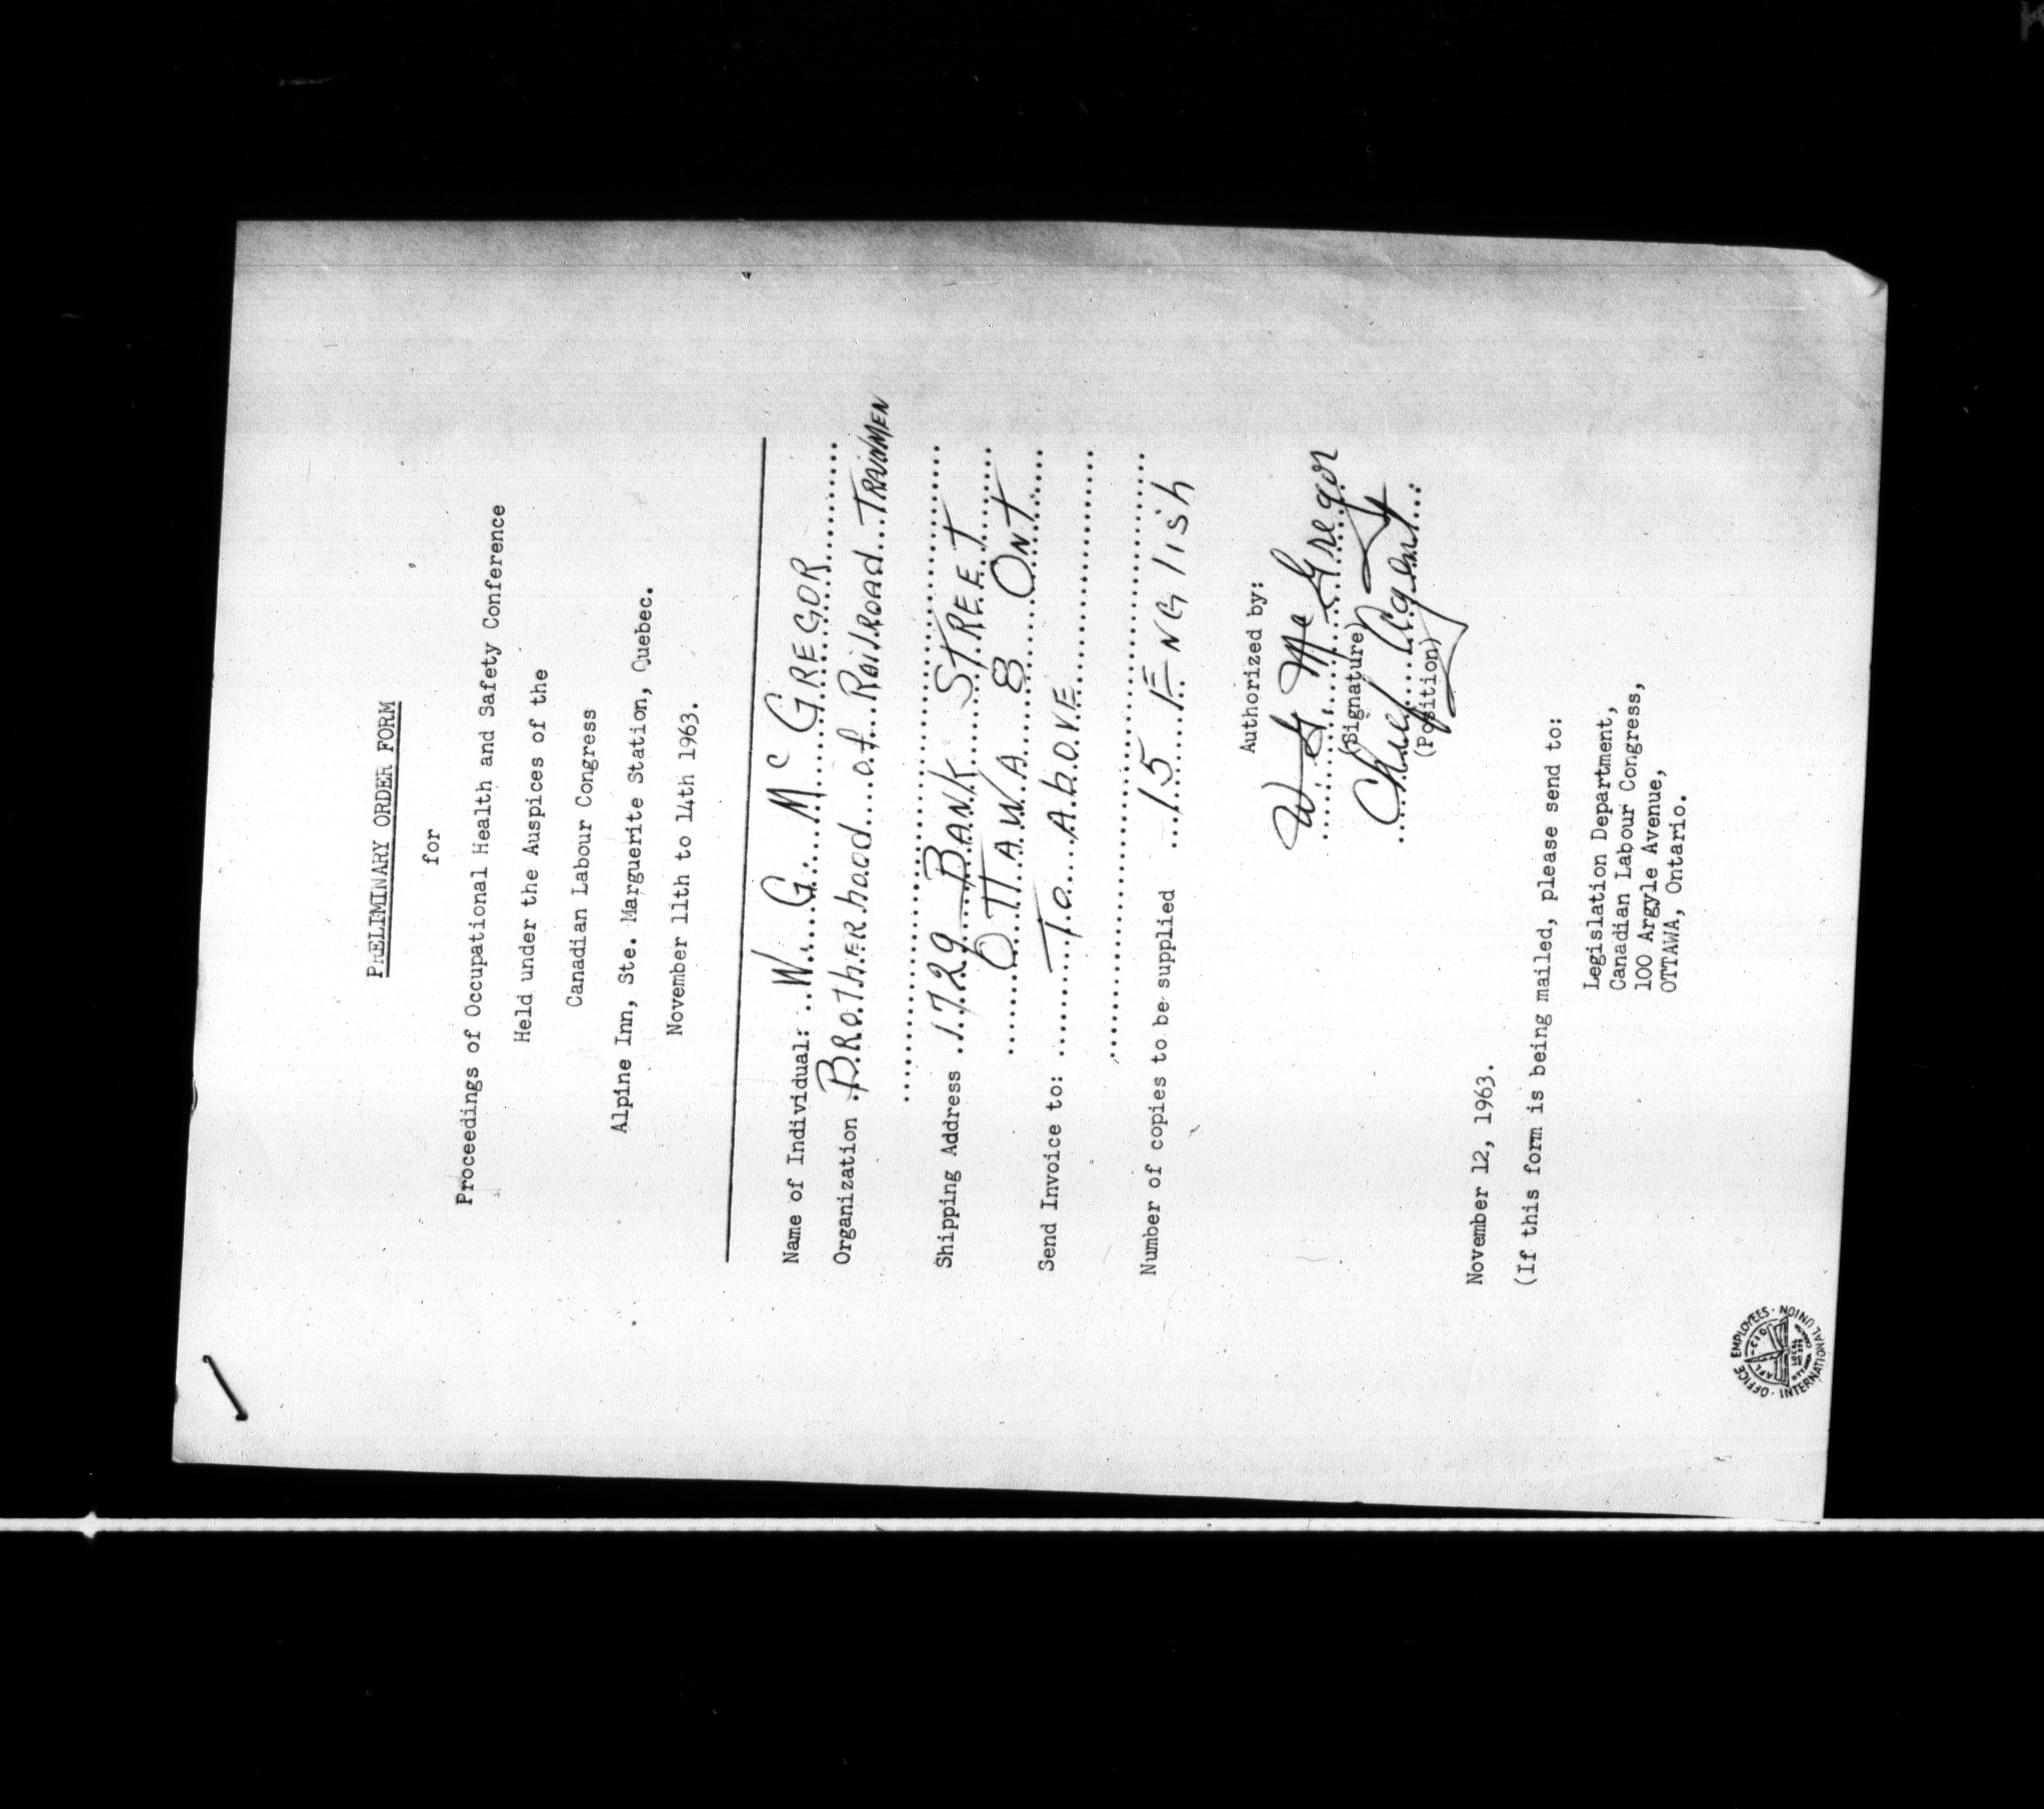 PRELIMINARY ORDER FORM
for
Proceedings of Occupational Health and Safety Conference
Held under the Auspices of the
Canadian Labour Congress
Alpine Inn, Ste. Marguerite Station, Quebec.
November 11th to 14th 1963.
Name of Individual: W. G. Mc GREGOR
Organization BROTHERhood of RaiLROAD TRAINMEN
Shipping Address 1729 BANK STREET
OTTAWA 8 ONT
Send Invoice to: To AboVE
Number of copies to be supplied 15 ENGlish
Authorized by:
W G. Mc Gregor
(Signature)
Chief Agent
(Position)
November 12, 1963.
(If this form is being mailed, please send to:
Legislation Department,
Canadian Labour Congress,
100 Argyle Avenue,
OTTAWA, Ontario.
OFFICE EMPLOYEES · INTERNATIONAL UNION
AFL-CIO
LOCAL